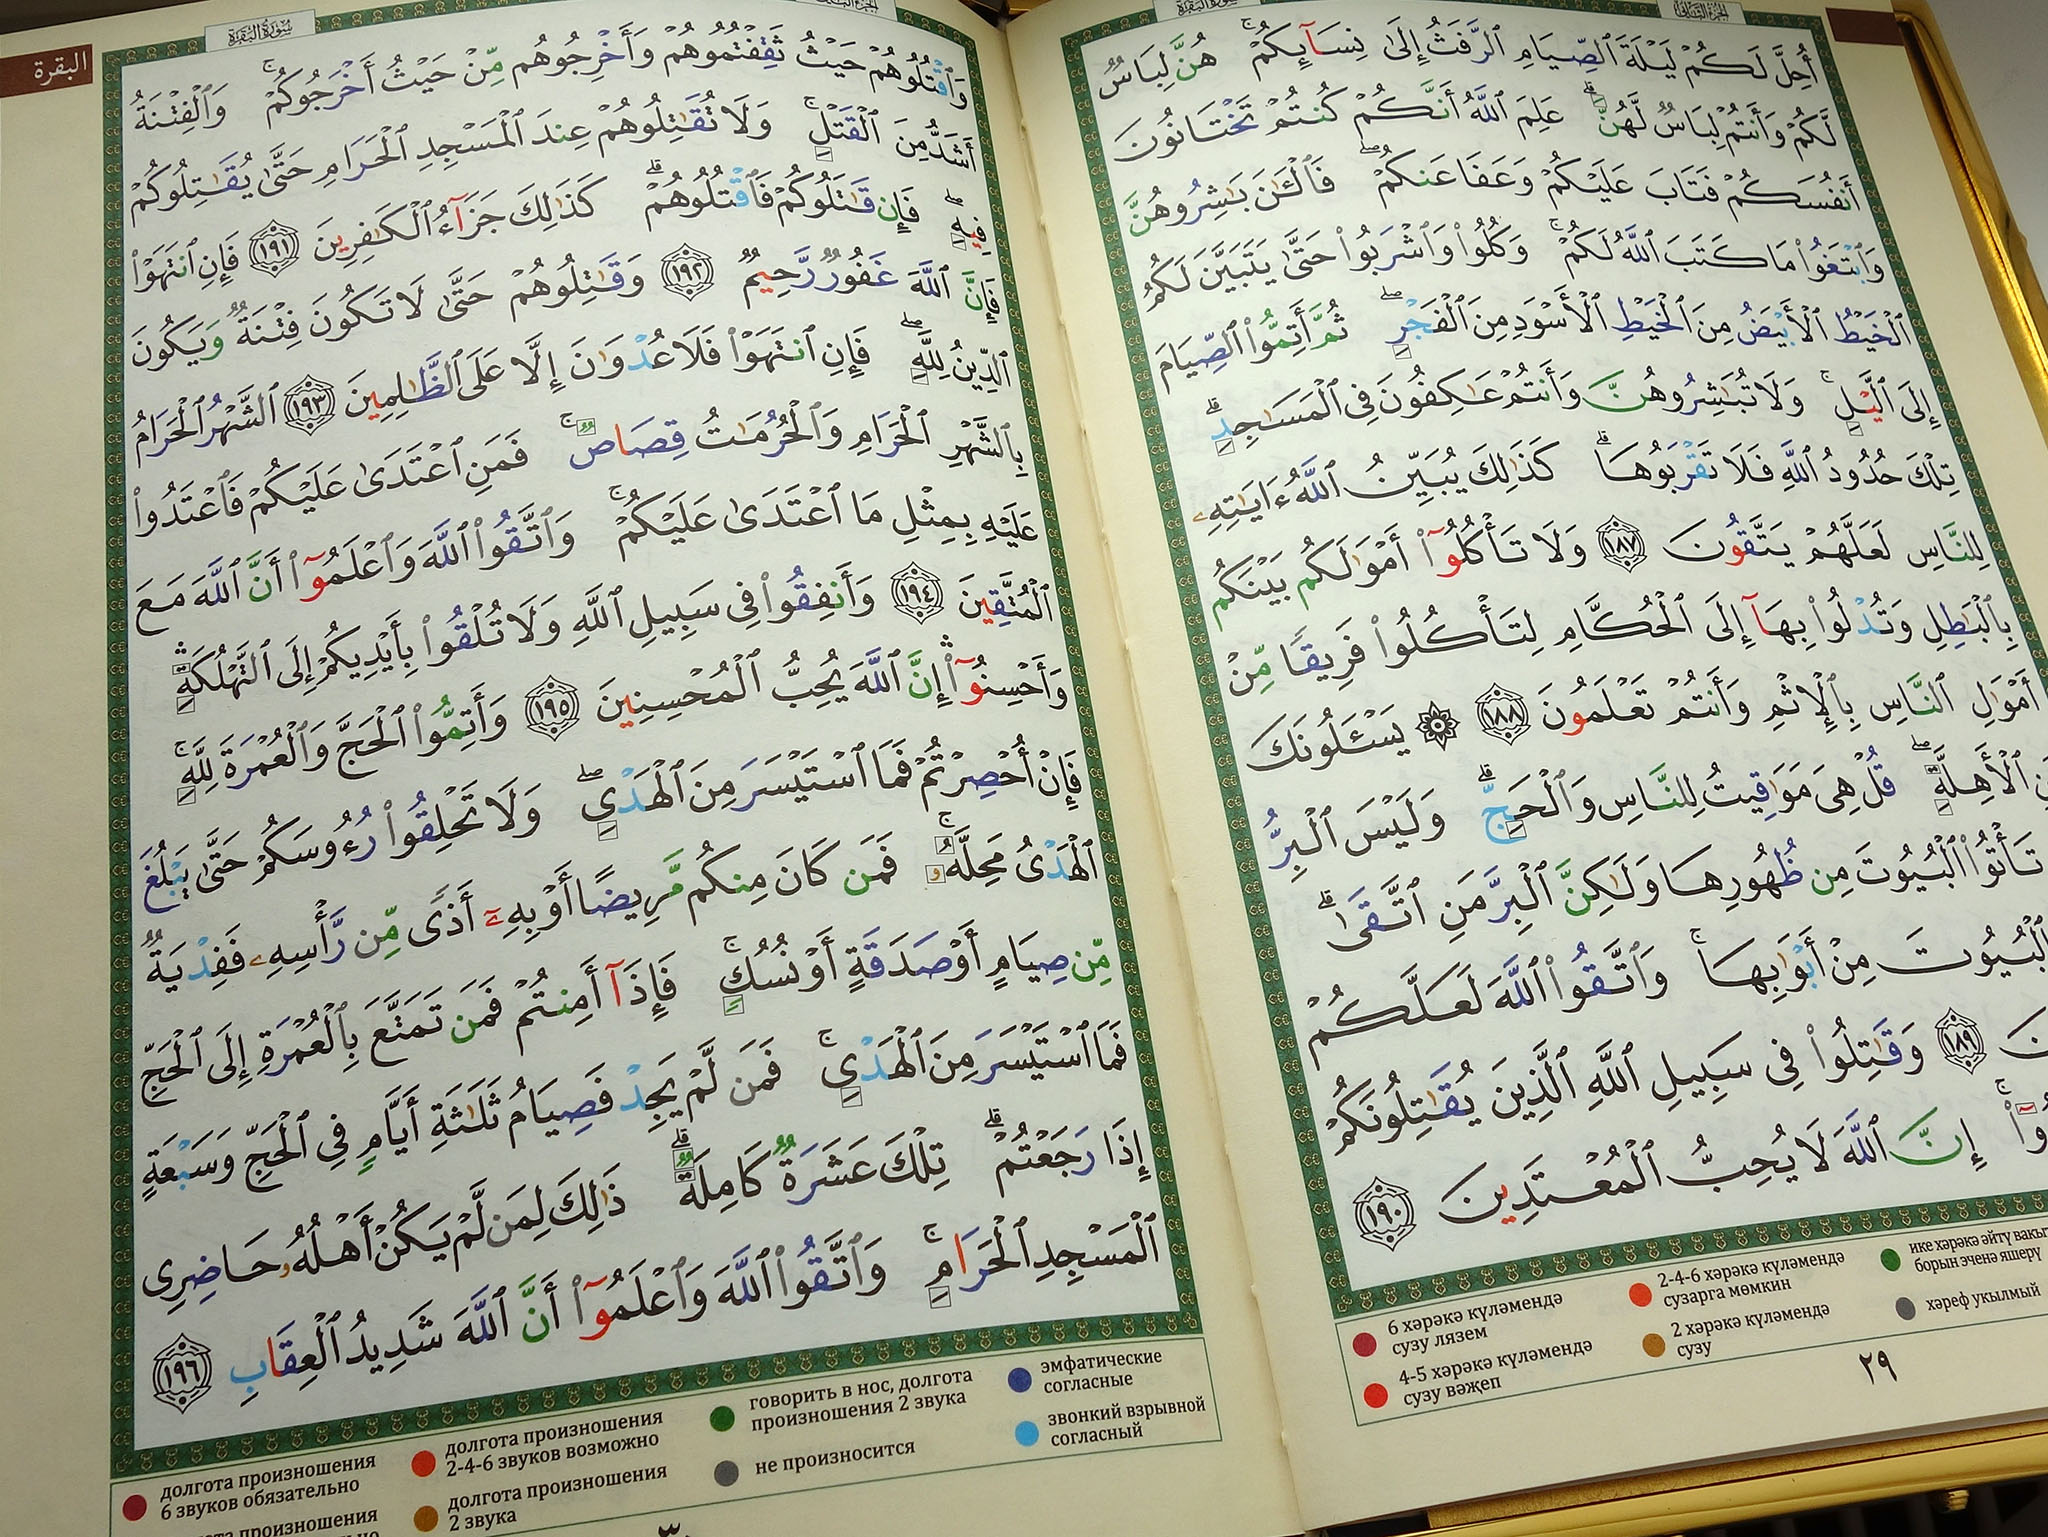 سُورَةُ البَقَرَةِ
أُحِلَّ لَكُمْ لَيْلَةَ ٱلصِّيَامِ ٱلرَّفَثُ إِلَىٰ نِسَآئِكُمْ ۚ هُنَّ لِبَاسٌ
لَّكُمْ وَأَنتُمْ لِبَاسٌ لَّهُنَّ ۗ عَلِمَ ٱللَّهُ أَنَّكُمْ كُنتُمْ تَخْتَانُونَ
أَنفُسَكُمْ فَتَابَ عَلَيْكُمْ وَعَفَا عَنكُمْ ۖ فَٱلْـَٰٔنَ بَـٰشِرُوهُنَّ
وَٱبْتَغُوا۟ مَا كَتَبَ ٱللَّهُ لَكُمْ ۚ وَكُلُوا۟ وَٱشْرَبُوا۟ حَتَّىٰ يَتَبَيَّنَ لَكُمُ
ٱلْخَيْطُ ٱلْأَبْيَضُ مِنَ ٱلْخَيْطِ ٱلْأَسْوَدِ مِنَ ٱلْفَجْرِ ۖ ثُمَّ أَتِمُّوا۟ ٱلصِّيَامَ
إِلَى ٱلَّيْلِ ۚ وَلَا تُبَـٰشِرُوهُنَّ وَأَنتُمْ عَـٰكِفُونَ فِى ٱلْمَسَـٰجِدِ ۗ
تِلْكَ حُدُودُ ٱللَّهِ فَلَا تَقْرَبُوهَا ۗ كَذَٰلِكَ يُبَيِّنُ ٱللَّهُ ءَايَـٰتِهِۦ
لِلنَّاسِ لَعَلَّهُمْ يَتَّقُونَ ١٨٧ وَلَا تَأْكُلُوٓا۟ أَمْوَٰلَكُم بَيْنَكُم
بِٱلْبَـٰطِلِ وَتُدْلُوا۟ بِهَآ إِلَى ٱلْحُكَّامِ لِتَأْكُلُوا۟ فَرِيقًا مِّنْ
أَمْوَٰلِ ٱلنَّاسِ بِٱلْإِثْمِ وَأَنتُمْ تَعْلَمُونَ ١٨٨ ۞ يَسْـَٔلُونَكَ
ٱلْأَهِلَّةِ ۖ قُلْ هِىَ مَوَٰقِيتُ لِلنَّاسِ وَٱلْحَجِّ ۗ وَلَيْسَ ٱلْبِرُّ
تَأْتُوا۟ ٱلْبُيُوتَ مِن ظُهُورِهَا وَلَـٰكِنَّ ٱلْبِرَّ مَنِ ٱتَّقَىٰ ۗ
ٱلْبُيُوتَ مِنْ أَبْوَٰبِهَا ۚ وَٱتَّقُوا۟ ٱللَّهَ لَعَلَّكُمْ
١٨٩ وَقَـٰتِلُوا۟ فِى سَبِيلِ ٱللَّهِ ٱلَّذِينَ يُقَـٰتِلُونَكُمْ
إِنَّ ٱللَّهَ لَا يُحِبُّ ٱلْمُعْتَدِينَ ١٩٠
6 хәрәкә күләмендә сузу лязем
4-5 хәрәкә күләмендә сузу вәҗеп
2-4-6 хәрәкә күләмендә сузарга мөмкин
2 хәрәкә күләмендә сузу
ике хәрәкә әйтү вакыт борын эченә яшерү
хәреф укылмый
٢٩
سُورَةُ البَقَرَةِ
البقرة
وَٱقْتُلُوهُمْ حَيْثُ ثَقِفْتُمُوهُمْ وَأَخْرِجُوهُم مِّنْ حَيْثُ أَخْرَجُوكُمْ ۚ وَٱلْفِتْنَةُ
أَشَدُّ مِنَ ٱلْقَتْلِ ۚ وَلَا تُقَـٰتِلُوهُمْ عِندَ ٱلْمَسْجِدِ ٱلْحَرَامِ حَتَّىٰ يُقَـٰتِلُوكُمْ
فِيهِ ۖ فَإِن قَـٰتَلُوكُمْ فَٱقْتُلُوهُمْ ۗ كَذَٰلِكَ جَزَآءُ ٱلْكَـٰفِرِينَ ١٩١ فَإِنِ ٱنتَهَوْا۟
فَإِنَّ ٱللَّهَ غَفُورٌ رَّحِيمٌ ١٩٢ وَقَـٰتِلُوهُمْ حَتَّىٰ لَا تَكُونَ فِتْنَةٌ وَيَكُونَ
ٱلدِّينُ لِلَّهِ ۖ فَإِنِ ٱنتَهَوْا۟ فَلَا عُدْوَٰنَ إِلَّا عَلَى ٱلظَّـٰلِمِينَ ١٩٣ ٱلشَّهْرُ ٱلْحَرَامُ
بِٱلشَّهْرِ ٱلْحَرَامِ وَٱلْحُرُمَـٰتُ قِصَاصٌ ۚ فَمَنِ ٱعْتَدَىٰ عَلَيْكُمْ فَٱعْتَدُوا۟
عَلَيْهِ بِمِثْلِ مَا ٱعْتَدَىٰ عَلَيْكُمْ ۚ وَٱتَّقُوا۟ ٱللَّهَ وَٱعْلَمُوٓا۟ أَنَّ ٱللَّهَ مَعَ
ٱلْمُتَّقِينَ ١٩٤ وَأَنفِقُوا۟ فِى سَبِيلِ ٱللَّهِ وَلَا تُلْقُوا۟ بِأَيْدِيكُمْ إِلَى ٱلتَّهْلُكَةِ ۛ
وَأَحْسِنُوٓا۟ ۛ إِنَّ ٱللَّهَ يُحِبُّ ٱلْمُحْسِنِينَ ١٩٥ وَأَتِمُّوا۟ ٱلْحَجَّ وَٱلْعُمْرَةَ لِلَّهِ ۚ
فَإِنْ أُحْصِرْتُمْ فَمَا ٱسْتَيْسَرَ مِنَ ٱلْهَدْىِ ۖ وَلَا تَحْلِقُوا۟ رُءُوسَكُمْ حَتَّىٰ يَبْلُغَ
ٱلْهَدْىُ مَحِلَّهُۥ ۚ فَمَن كَانَ مِنكُم مَّرِيضًا أَوْ بِهِۦٓ أَذًى مِّن رَّأْسِهِۦ فَفِدْيَةٌ
مِّن صِيَامٍ أَوْ صَدَقَةٍ أَوْ نُسُكٍ ۚ فَإِذَآ أَمِنتُمْ فَمَن تَمَتَّعَ بِٱلْعُمْرَةِ إِلَى ٱلْحَجِّ
فَمَا ٱسْتَيْسَرَ مِنَ ٱلْهَدْىِ ۚ فَمَن لَّمْ يَجِدْ فَصِيَامُ ثَلَـٰثَةِ أَيَّامٍ فِى ٱلْحَجِّ وَسَبْعَةٍ
إِذَا رَجَعْتُمْ ۗ تِلْكَ عَشَرَةٌ كَامِلَةٌ ۗ ذَٰلِكَ لِمَن لَّمْ يَكُنْ أَهْلُهُۥ حَاضِرِى
ٱلْمَسْجِدِ ٱلْحَرَامِ ۚ وَٱتَّقُوا۟ ٱللَّهَ وَٱعْلَمُوٓا۟ أَنَّ ٱللَّهَ شَدِيدُ ٱلْعِقَابِ ١٩٦
долгота произношения
6 звуков обязательно
долгота произношения
2-4-6 звуков возможно
долгота произношения
2 звука
говорить в нос, долгота
произношения 2 звука
не произносится
эмфатические
согласные
звонкий взрывной
согласный